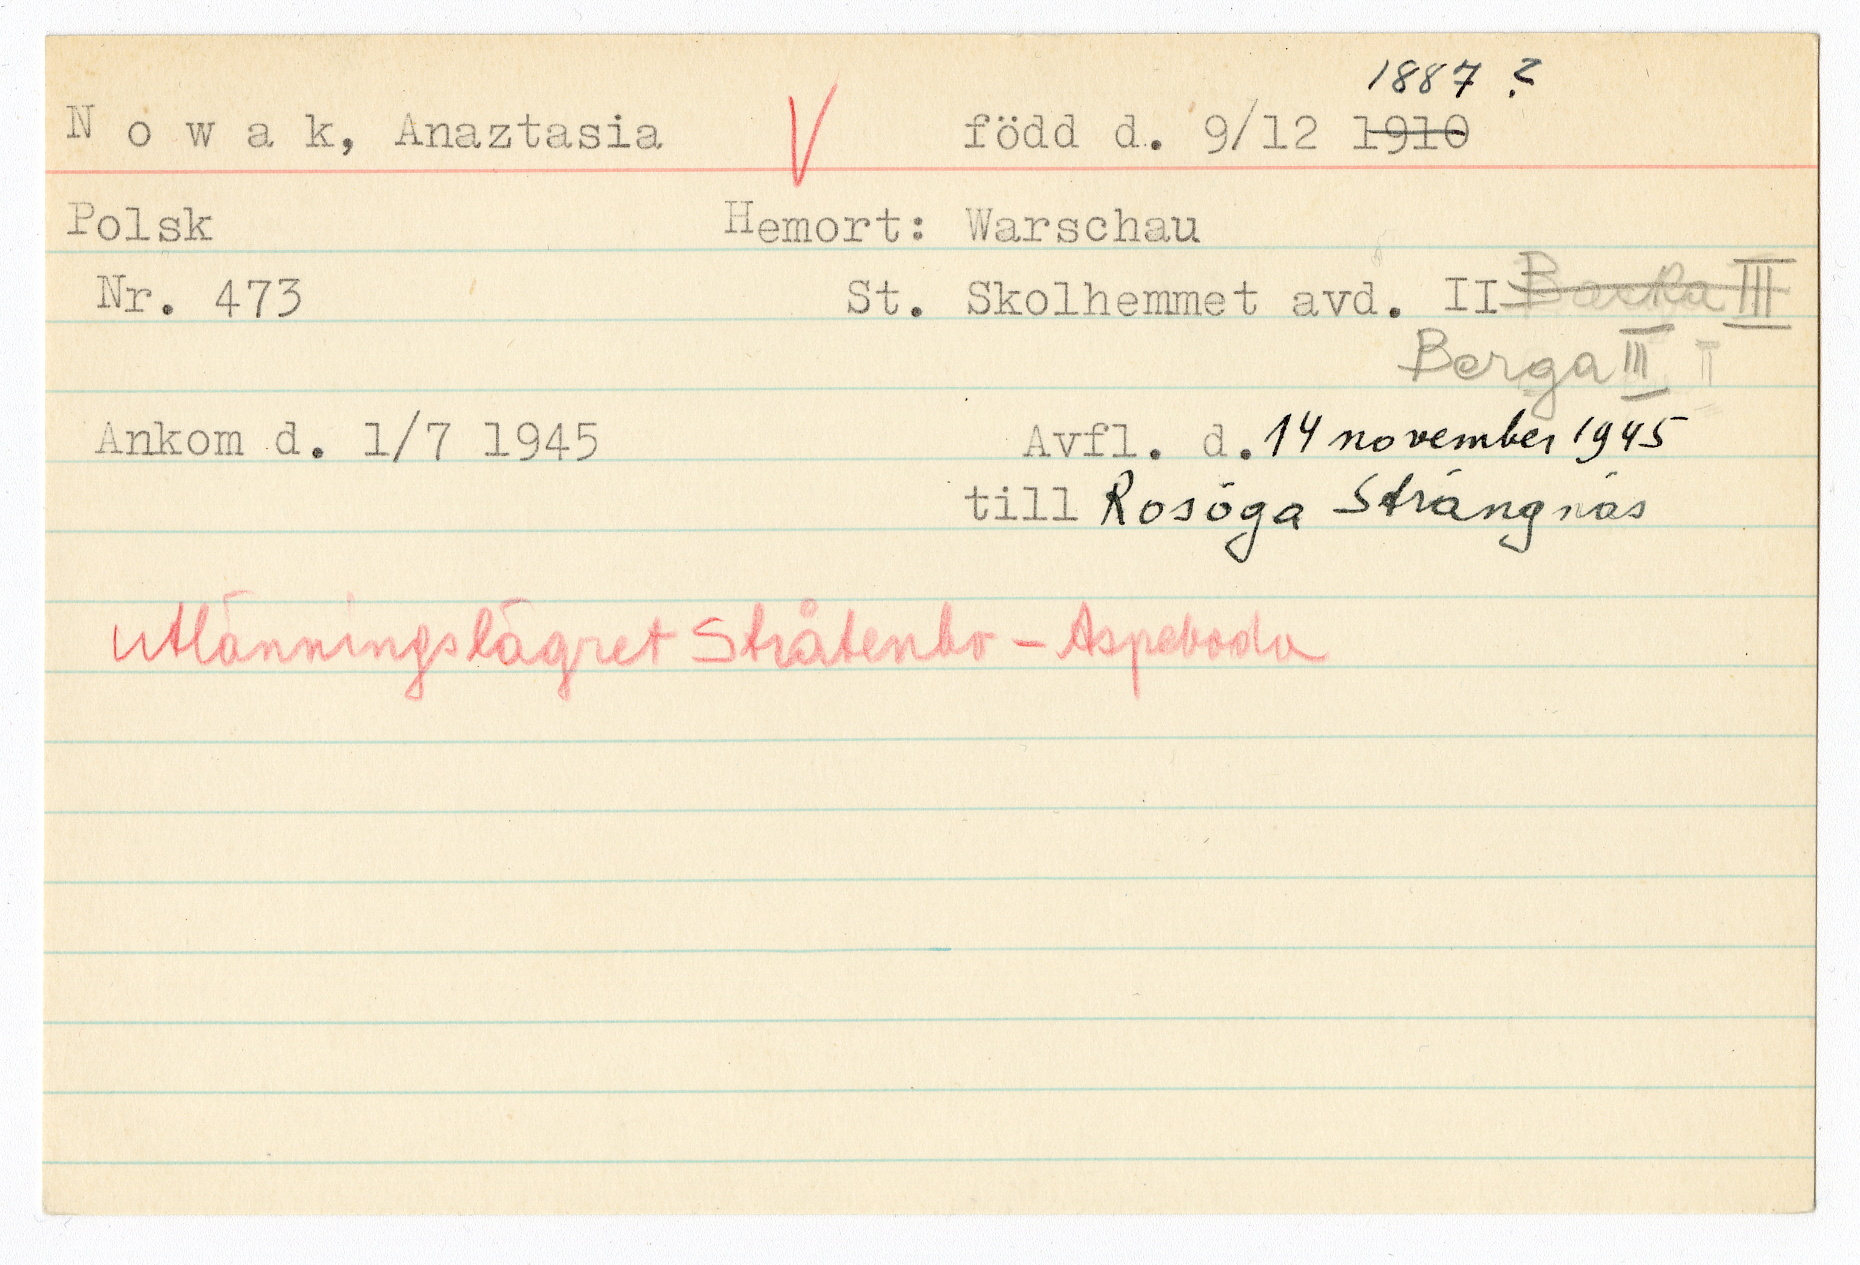 1887 ?
Nowak, Anaztasia V född d. 9/12 1910
Polsk Hemort: Warschau
Nr. 473 St. Skolhemmet avd. II Backa III
Berga III I
Ankom d. 1/7 1945 Avfl. d. 14 november 1945
till Rosöga Strängnäs
utlänningslägret Stråtenbo - Aspeboda